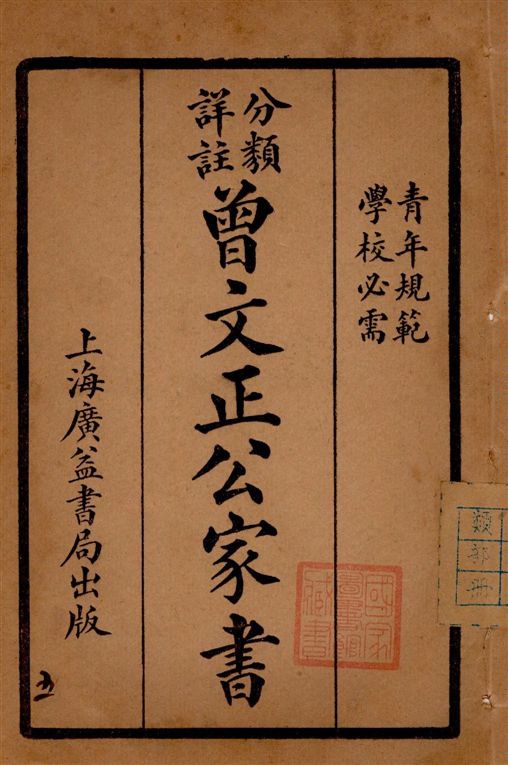 青年規範
學校必需
分類
詳註
曾文正公家書
上海廣益書局出版
五
國家
圖書館
藏書
類
部
冊